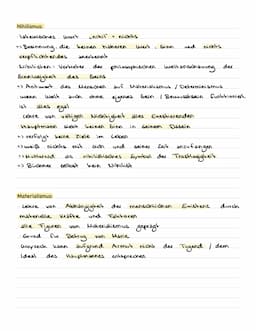 Nihilismus
· lateinisches Wort "nihil" = nichts
→ Gesinnung, die keinen höheren Wert, Sinn und nichts
verpflichtendes anerkennt
· Nihilisten: Vertreter der philosophischen Weltanschauung der
Sinnlosigkeit des Seins
→ Antwort des Menschen auf Materialismus / Determinismus
wenn Welt auch ohne eigenes Sein / Bewusstsein funktioniert
ist alles egal
· Lehre von völligen Nichtigkeit alles Existierenden
· Hauptmann sieht keinen Sinn in seinem Dasein
→ verfolgt keine Ziele im Leben
→ weiß nichts mit sich und seiner Zeit anzufangen
→ als nihilistisches Symbol der
→ Büchner selbst kein Nihilist
Materialismus
· Lehre von Abhängigkeit der menschlichen Existenz durch
materielle Kräfte und Faktoren
· alle Figuren von Materialismus geprägt
· Grund für Betrug von Marie
· Woyzeck kann aufgrund Armut nicht der Tugend / dem
Ideal des Hauptmannes entsprechen